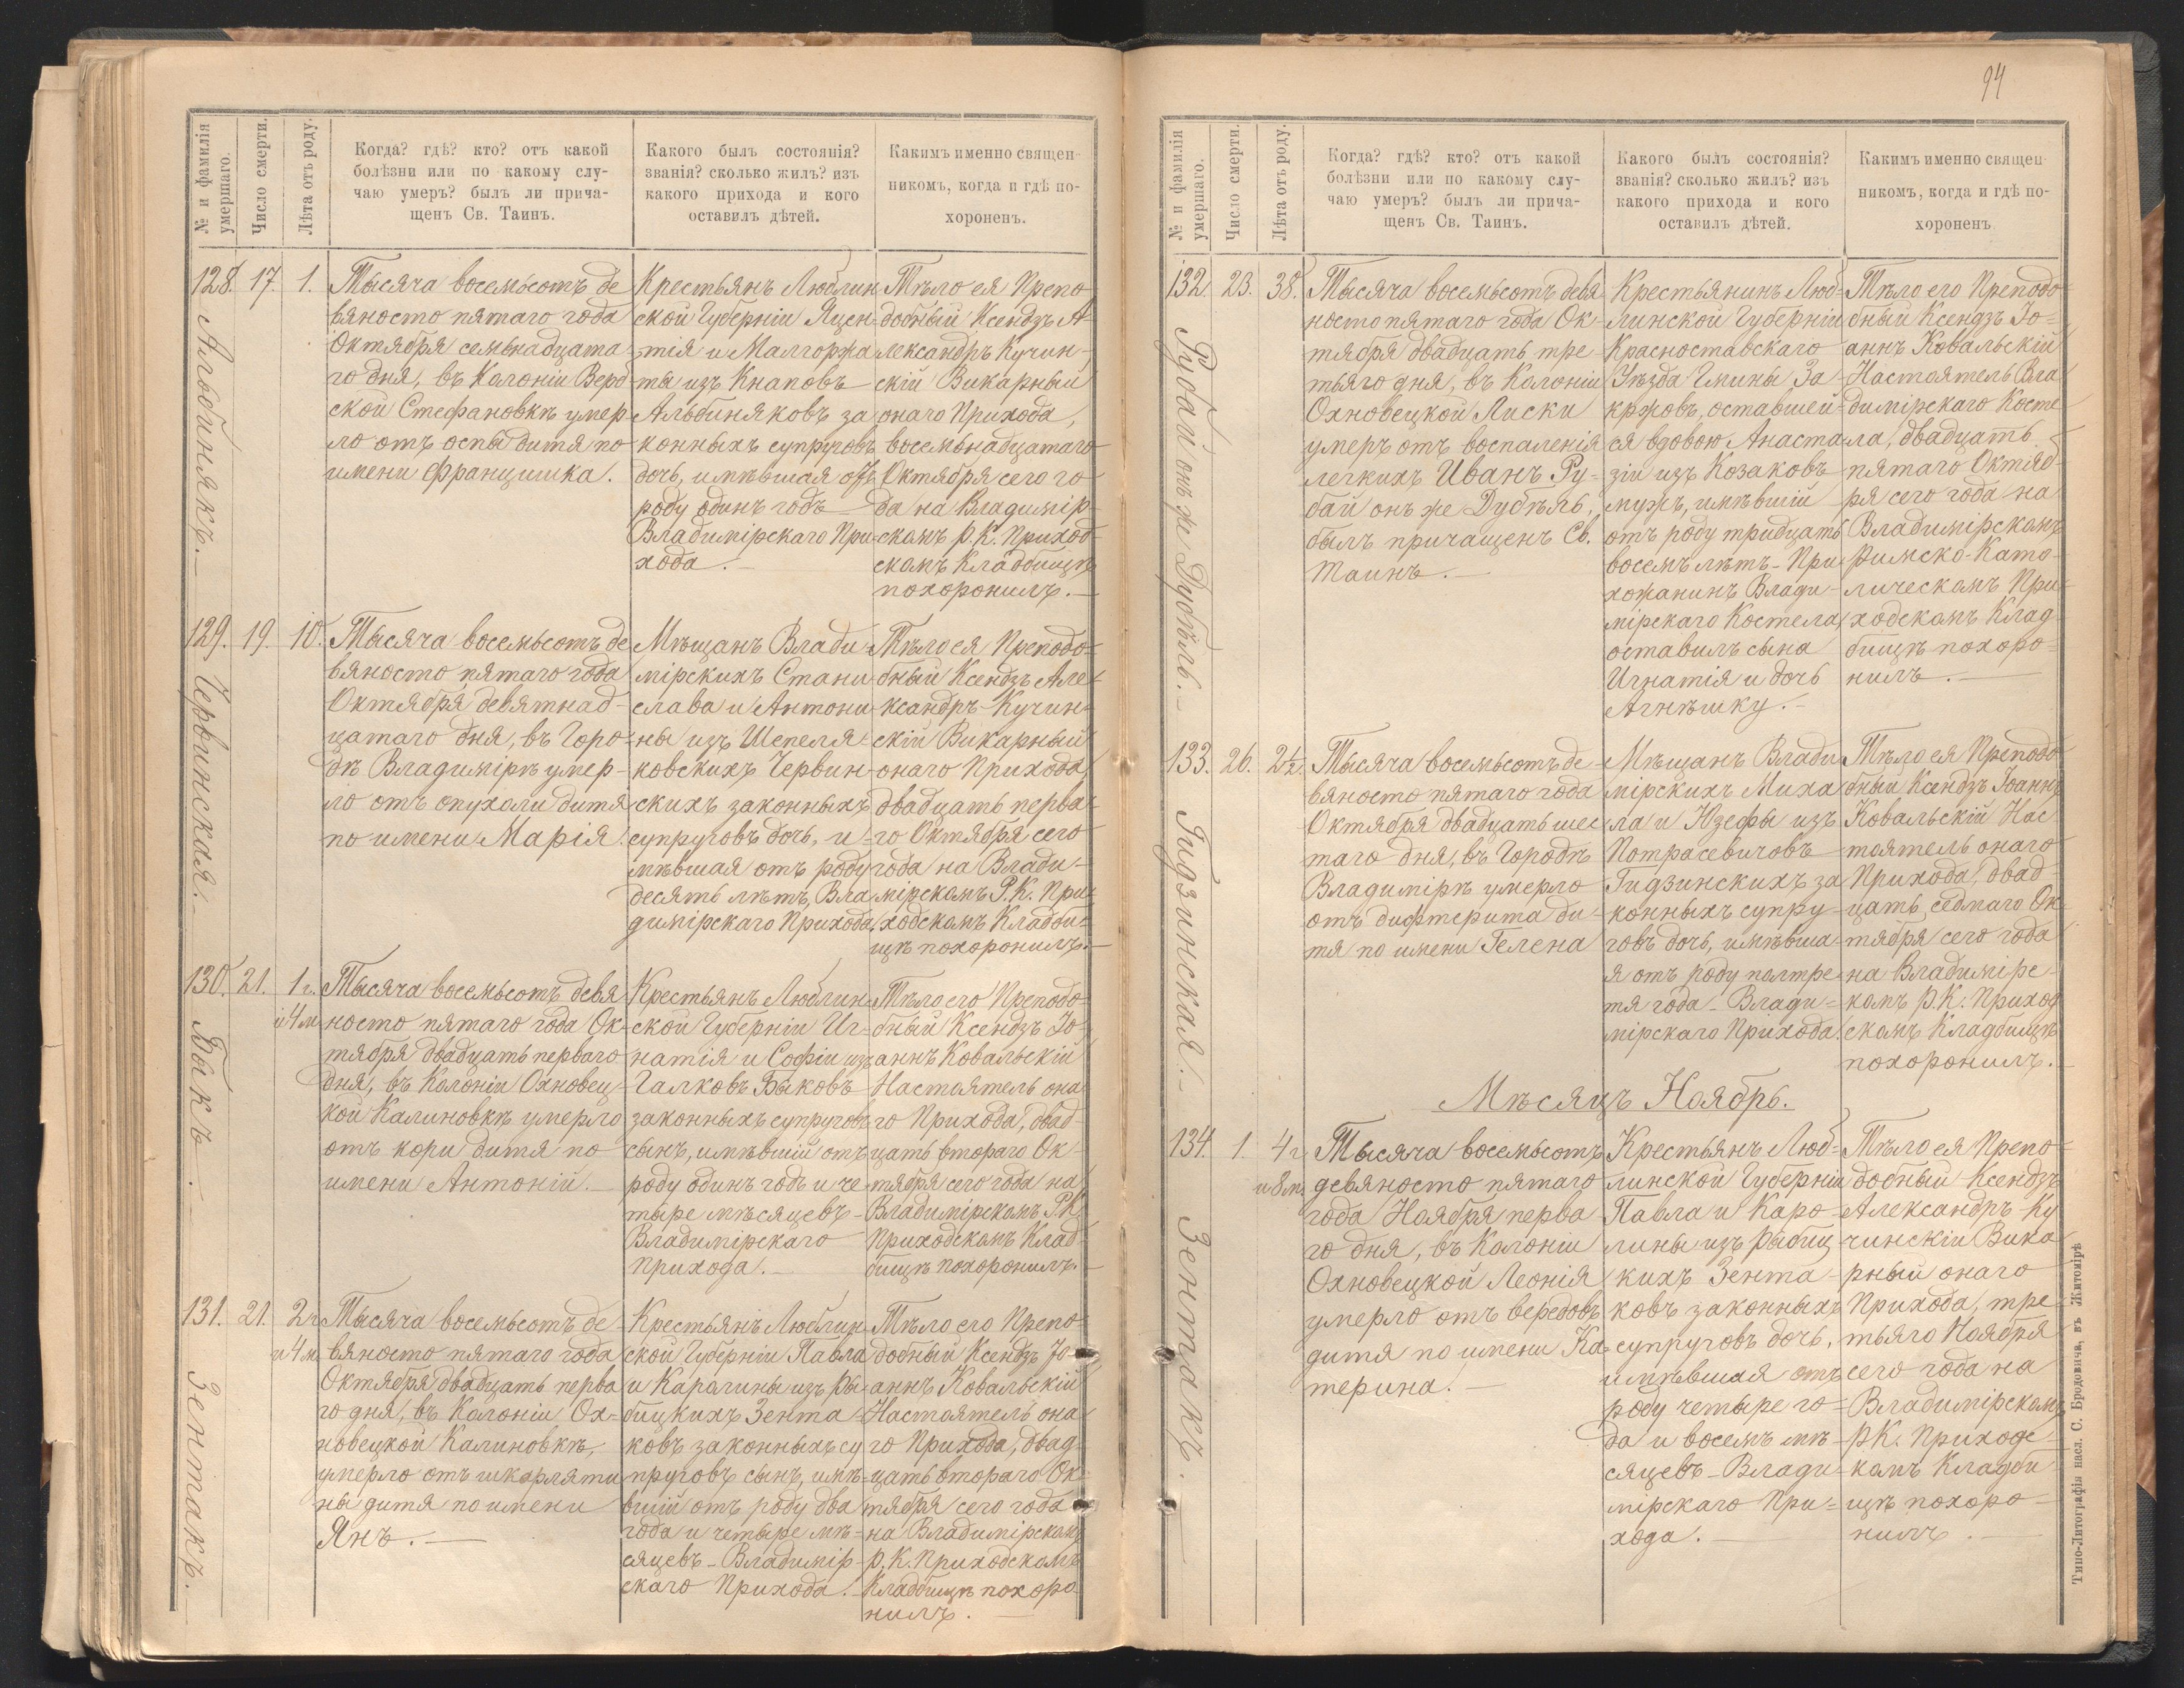 94
№ и фамилія умершаго.
Число смерти.
Лѣта отъ роду.
Когда? гдѣ? кто? отъ какой
болѣзни или по какому слу-
чаю умеръ? былъ ли прича-
щенъ Св. Таинъ.
Какого былъ состоянія?
званія? сколько жилъ? изъ
какого прихода и кого
оставилъ дѣтей.
Какимъ именно священ-
никомъ, когда и гдѣ по-
хороненъ.
128.
Альбинякъ.
17.
1.
Тысяча восемьсотъ де
вяносто пятаго года
Октября семьнадцата-
го дня, въ Колоніи Верб
ской Стефановкѣ умер
ло отъ оспы дитя по
имени Францишка.
Крестьянъ Люблин
ской Губерніи Яцен-
тія и Малгоржа
ты изъ Кнаповъ
Альбиняковъ за
конныхъ супруговъ
дочь, имѣвшая отъ
роду одинъ годъ
Владимірскаго При-
хода.
Тѣло ея Препо
добный Ксендзъ А-
лександръ Кучин-
скій Викарный
онаго Прихода,
восемьнадцатаго
Октября сего го
да на Владимір-
скомъ Р.К. Приход-
скомъ Кладбищѣ
похоронилъ.
129.
Червинская.
19.
10.
Тысяча восемьсотъ де
вяносто пятаго года
Октября девятнад-
цатаго дня, въ Горо-
дѣ Владимірѣ умер-
ло отъ опухоли дитя
по имени Марія.
Мѣщанъ Влади-
мірскихъ Стани-
слава и Антони-
ны изъ Шепеля-
ковскихъ Червин-
скихъ законныхъ
супруговъ дочь, и-
мѣвшая отъ роду
десять лѣтъ, Вла
димірскаго Прихода.
Тѣло ея Преподо-
бный Ксендзъ Але-
ксандръ Кучин-
скій Викарный
онаго Прихода,
двадцать перва-
го Октября сего
года на Влади-
мірскомъ Р.К. При-
ходскомъ Кладби-
щѣ похоронилъ.
130.
Быкъ.
21.
1 г.
и 4 м.
Тысяча восемьсотъ девя
носто пятаго года Ок-
тября двадцать перваго
дня, въ Колоніи Охновец-
кой Калиновкѣ умерло
отъ кори дитя по
имени Антоній.
Крестьянъ Люблин-
ской Губерніи Иг-
натія и Софіи изъ
Галковъ Быковъ
законныхъ супруговъ
сынъ, имѣвшій отъ
роду одинъ годъ и че
тыре мѣсяцевъ
Владимірскаго
Прихода.
Тѣло его Преподо-
бный Ксендзъ Іо-
аннъ Ковальскій
Настоятель она
го Прихода, двад-
цать втораго Ок-
тября сего года на
Владимірскомъ Р.К.
Приходскомъ Клад-
бищѣ похоронилъ.
131.
Зентакъ.
21.
2 г.
и 4 м.
Тысяча восемьсотъ де-
вяносто пятаго года
Октября двадцать перва
го дня, въ Колоніи Ох-
новецкой Калиновкѣ,
умерло отъ шкарляти
ны дитя по имени
Янъ.
Крестьянъ Люблин
ской Губерніи Павла
и Каралины изъ Ры-
бицкихъ Зента-
ковъ законныхъ су
пруговъ сынъ, имѣ-
вшій отъ роду два
года и четыре мѣ-
сяцевъ - Владимір-
скаго Прихода.
Тѣло его Препо
добный Ксендзъ Іо-
аннъ Ковальскій
Настоятель она
го Прихода, двад-
цать втораго Ок-
тября сего года
на Владимірскомъ
Р.К. Приходскомъ
Кладбищѣ похоро
нилъ.
№ и фамилія умершаго.
Число смерти.
Лѣта отъ роду.
Когда? гдѣ? кто? отъ какой
болѣзни или по какому слу-
чаю умеръ? былъ ли прича-
щенъ Св. Таинъ.
Какого былъ состоянія?
званія? сколько жилъ? изъ
какого прихода и кого
оставилъ дѣтей.
Какимъ именно священ-
никомъ, когда и гдѣ по-
хороненъ
132
Рубай онъ же Дубѣль.
23.
38.
Тысяча восемьсотъ девя
носто пятаго года Ок-
тября двадцать тре
тьяго дня, въ Колоніи
Охновецкой Лиски
умеръ отъ воспаленія
легкихъ Иванъ Ру-
бай онъ же Дубѣль,
былъ причащенъ Св.
Таинъ.
Крестьянинъ Люб-
линской Губерніи
Красноставскаго
Уѣзда Гмины За-
кржовъ, оставшей-
ся вдовою Анаста
зіи изъ Козаковъ
мужъ, имѣвшій
отъ роду тридцать
восемъ лѣтъ - При
хожанинъ Влади-
мірскаго Костела
оставилъ сына
Игнатія и дочь
Агнѣшку.
Тѣло его Преподо-
бный Ксендзъ Іо-
аннъ Ковальскій
Настоятель Вла
димірскаго Косте
ла, двадцать
пятаго Октяб-
ря сего года на
Владимірскомъ
Римско-Като-
лическомъ При-
ходскомъ Клад-
бищѣ похоро-
нилъ.
133.
Гидзинская.
26.
2½.
Тысяча восемьсотъ де-
вяносто пятаго года
Октября двадцать шес
таго дня, въ Городѣ
Владимірѣ умерло
отъ дифтерита ди-
тя по имени Гелена
Мѣщанъ Влади
мірскихъ Миха
ла и Юзефы изъ
Потрасевичовъ
Гидзинскихъ за
конныхъ супру-
говъ дочь, имѣвша-
я отъ роду полтре
тя года - Влади-
мірскаго Прихода.
Тѣло ея Преподо
бный Ксендзъ Іоаннъ
Ковальскій Нас
тоятель онаго
Прихода, двад-
цать седмаго Ок-
тября сего года
на Владимірс-
комъ Р.К. Приход
скомъ Кладбищѣ
похоронилъ.
Мѣсяцъ Ноябрь.
134.
Зентакъ.
1.
4 г.
и 8 м.
Тысяча восемьсотъ
девяносто пятаго
года Ноября перва
го дня, въ Колоніи
Охновецкой Леонія
умерло отъ вередовъ
дитя по имени Ка-
терина.
Крестьянъ Люб-
линской Губерніи
Павла и Каро-
лины изъ Рыбиц-
кихъ Зента-
ковъ законныхъ
супруговъ дочь,
имѣвшая отъ
роду четыре го-
да и восемъ мѣ-
сяцевъ - Влади-
мірскаго При-
хода.
Тѣло ея Препо-
добный Ксендзъ
Александръ Ку
чинскій Вика
рный онаго
Прихода, тре
тьяго Ноября
сего года на
Владимірскомъ
Р.К. Приходс
комъ Кладби
щѣ похоро-
нилъ.
Типо-Литографія насл. С. Бродовича, въ Житомірѣ